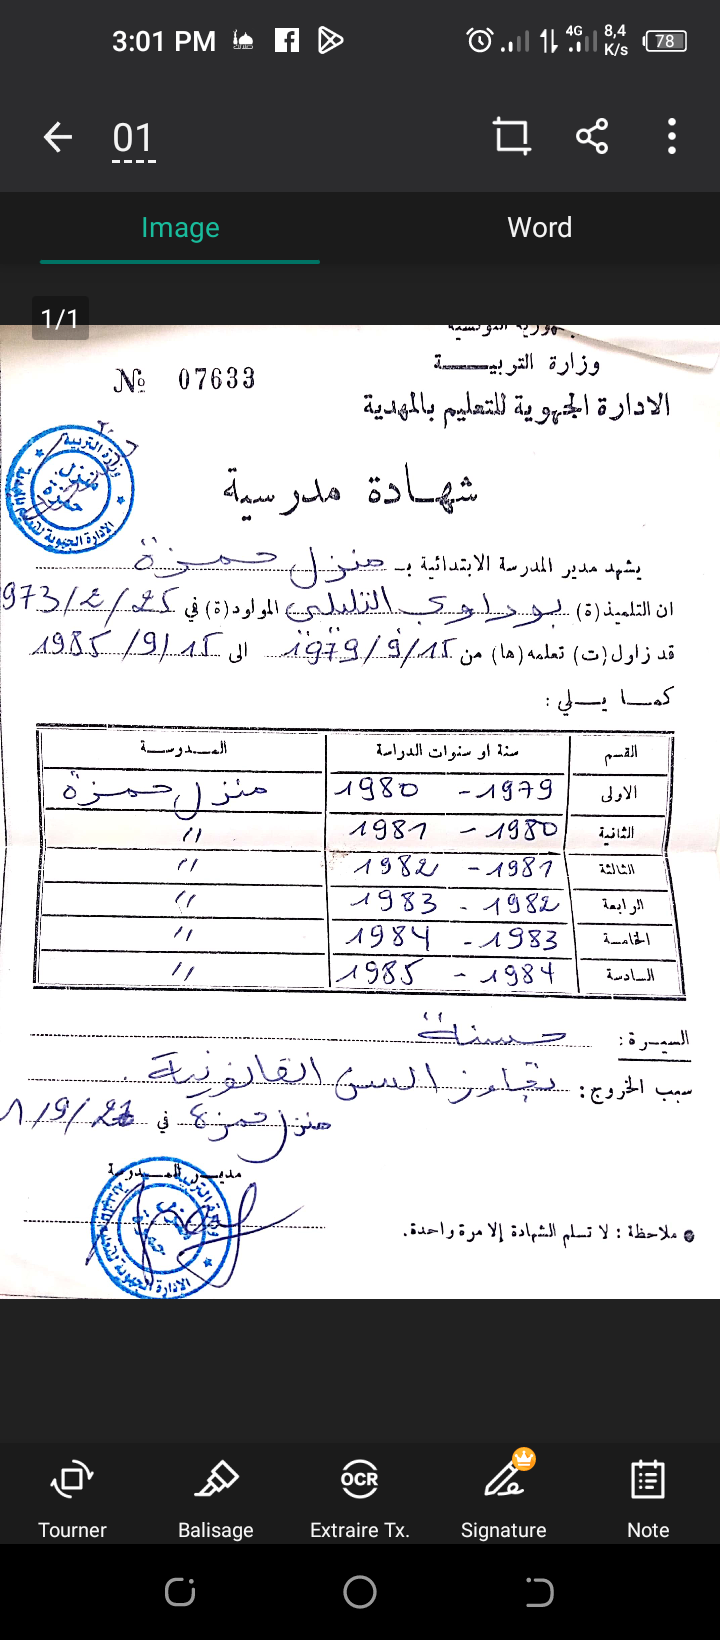 3:01 PM 4G 8,4 K/s 78
01
Image Word
1/1
وزارة التربيــــة
№ 07633
الادارة الجهوية للتعليم بالمهدية
شهــادة مدرسية
يشهد مدير المدرسة الابتدائية بـ منزل حمزة
ان التلميذ(ة) المولود(ة) في 25/2/973
قد زاول(ت) تعلمه(ها) من 15/9/1979 الى 15/9/1985
كمــا يــلي :
القسم سنة او سنوات الدراسة المــدرســة
الاولى 1979 - 1980 منزل حمزة
الثانية 1980 - 1981 //
الثالثة 1981 - 1982 //
الرابعة 1982 - 1983 //
الخامسة 1983 - 1984 //
السادسة 1984 - 1985 //
السيــرة : حسنة
سبب الخروج : تجاوز السن القانونية .
منزل حمزة في
مديــر المــدرسة
ملاحظة : لا تسلم الشهادة إلا مرة واحدة.
Tourner Balisage OCR Extraire Tx. Signature Note